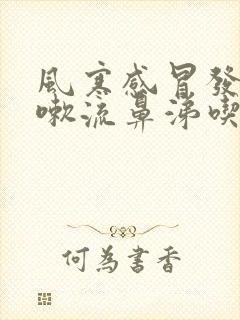 風寒感冒發
嗽流鼻涕喫
何為書香